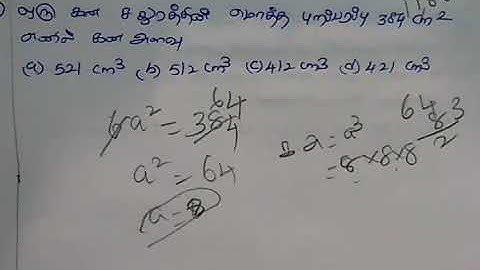 ஒரு கன சதுரத்தின் மொத்த புறப்பரப்பு 384 cm2
எனில் கன அளவு
(a) 521 cm³ (b) 512 cm³ (c) 412 cm³ (d) 421 cm³
64
6a² = 384
a² = 64
a = 8
a = a³
= 8×8×8
64
8 3
2